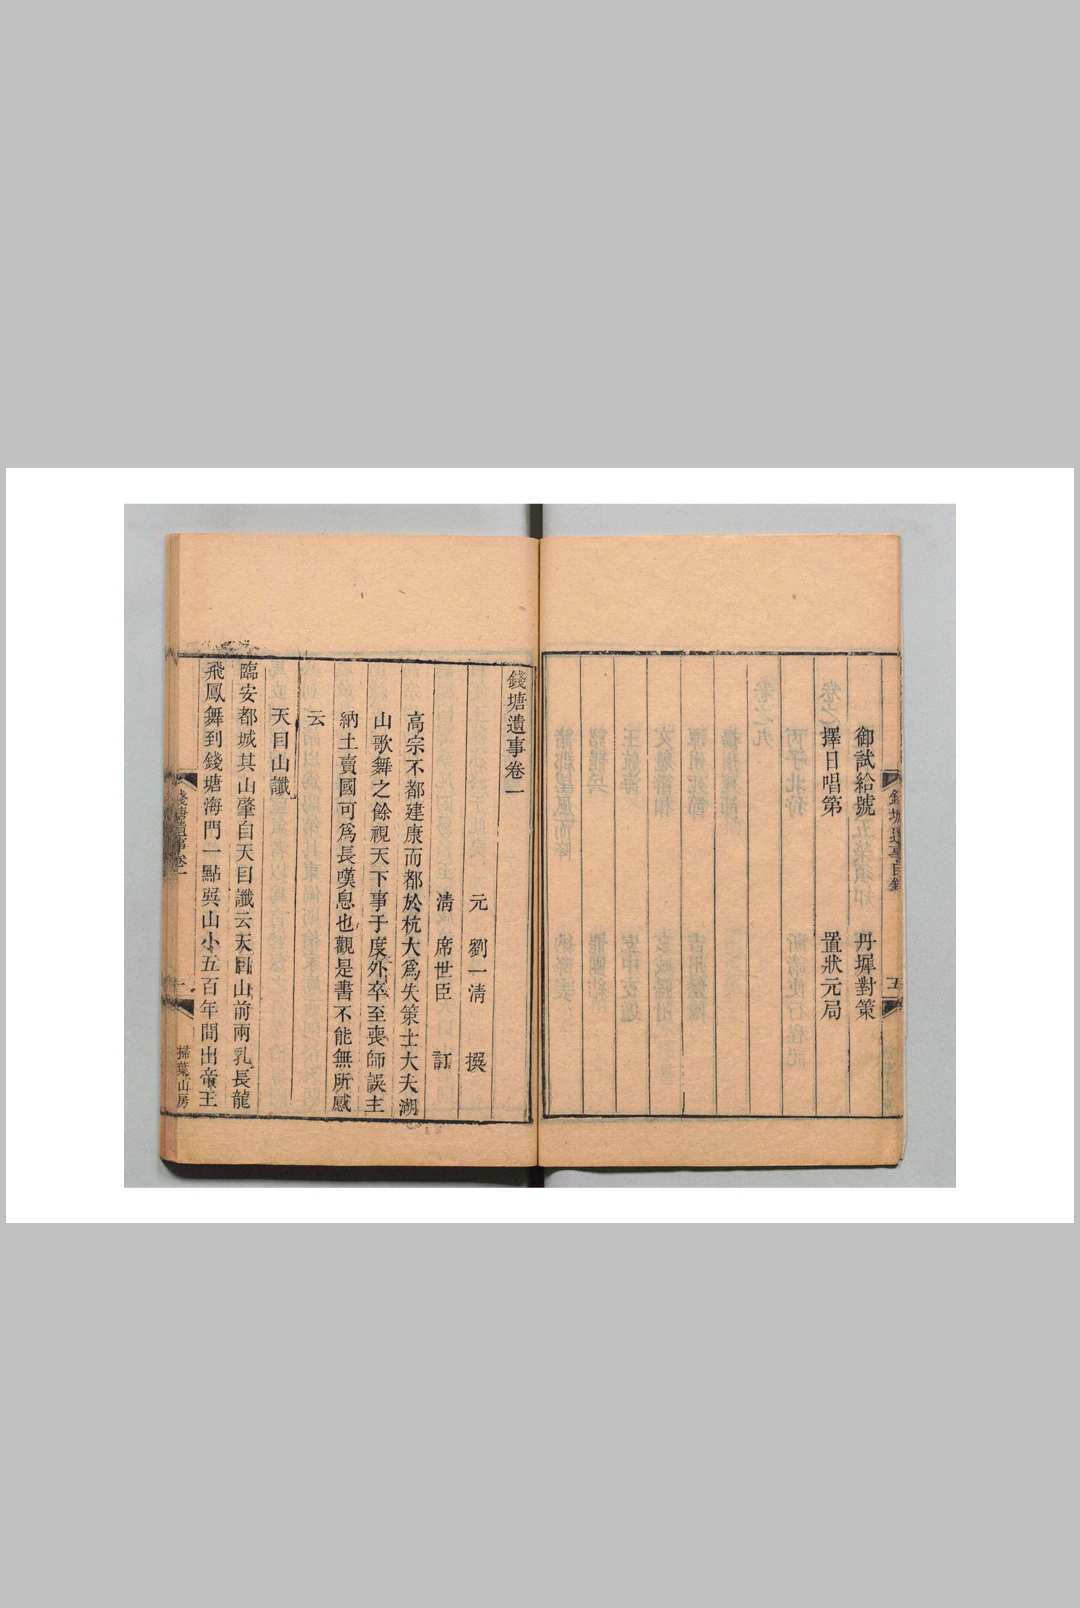 御試給號　丹墀對策
擇日唱第　置狀元局
錢塘遺事目錄　五
錢塘遺事卷一
元　劉一淸　撰
淸　席世臣　訂
高宗不都建康而都於杭大爲失策士大夫湖
山歌舞之餘視天下事于度外卒至喪師誤主
納土賣國可爲長嘆息也觀是書不能無所感
云
天目山讖
臨安都城其山肇自天目讖云天目山前兩乳長龍
飛鳳舞到錢塘海門一點巽山小五百年間出帝王
錢塘遺事卷一　一　掃葉山房